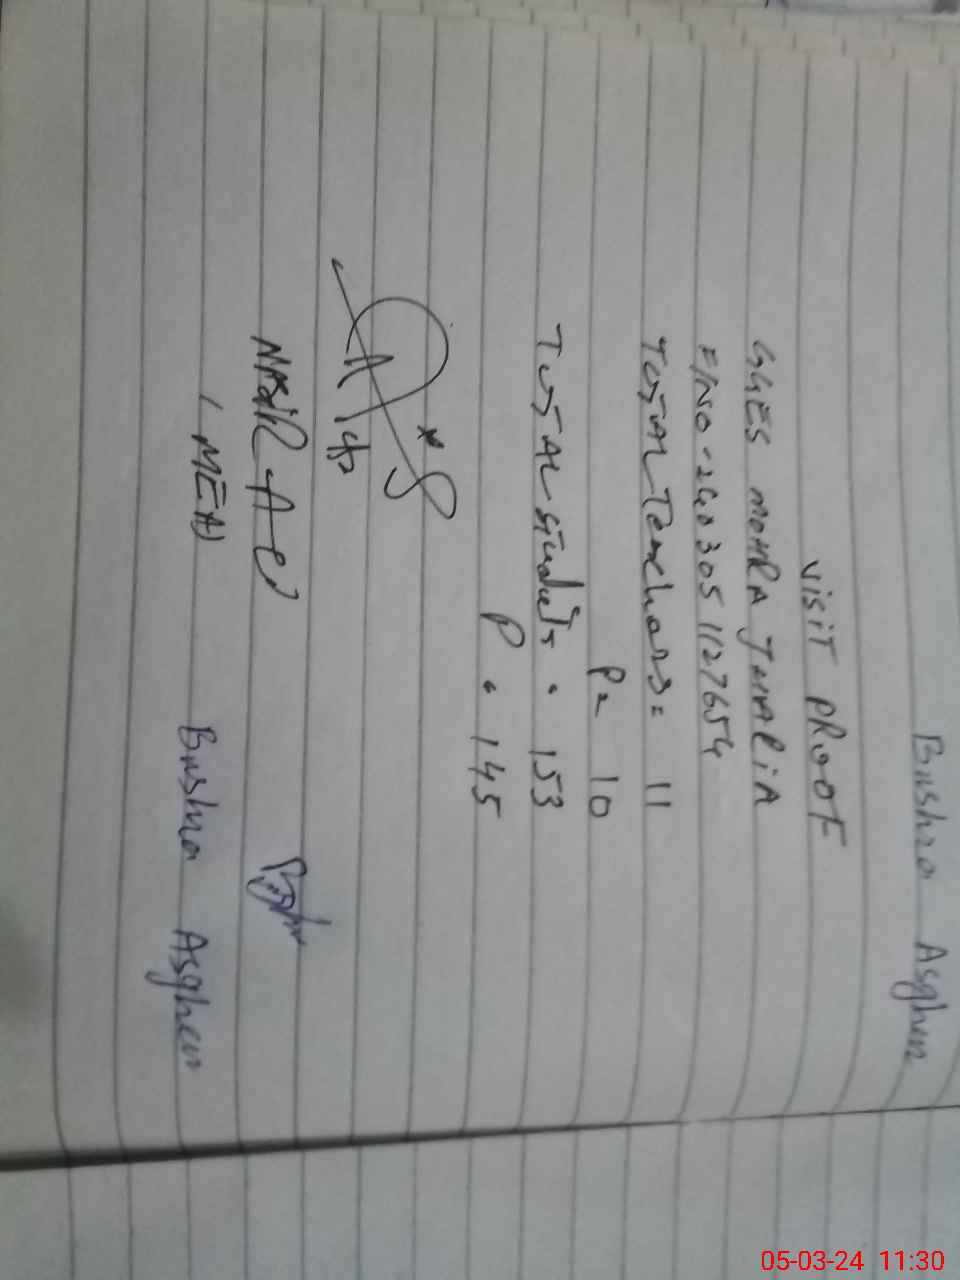 Bushra Asghar
VISIT PROOF
GGES MOHRA JMALIA
F/NO - 240305 1127654
TOTAL Teachers = 11
P = 10
TOTAL students . 153
P . 145
(MEA)
Bushra Asghar
05-03-24 11:30